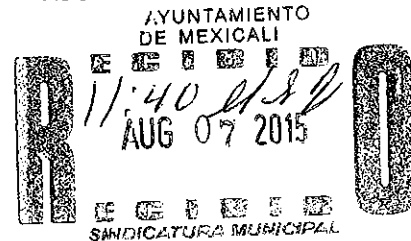 AYUNTAMIENTO
DE MEXICALI
RECIBIDO
11:40
AUG 07 2015
RECIBIDO
SINDICATURA MUNICIPAL